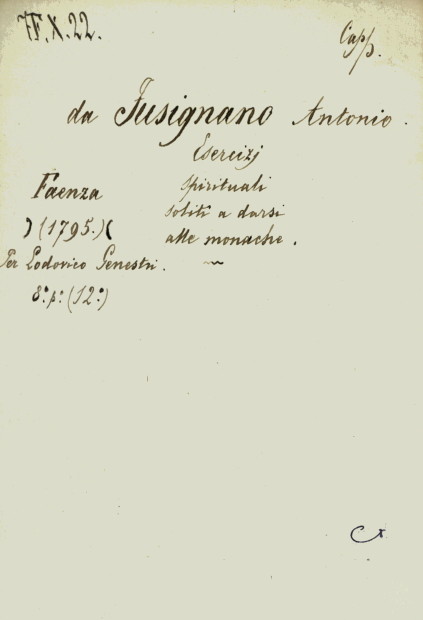 7F.X.22.
Capp.
da Fusignano Antonio.
Esercizj
spirituali
soliti a darsi
alle monache.
Faenza
)(1795.)(
Per Lodovico Genestri.
8.° p.° (12.°)